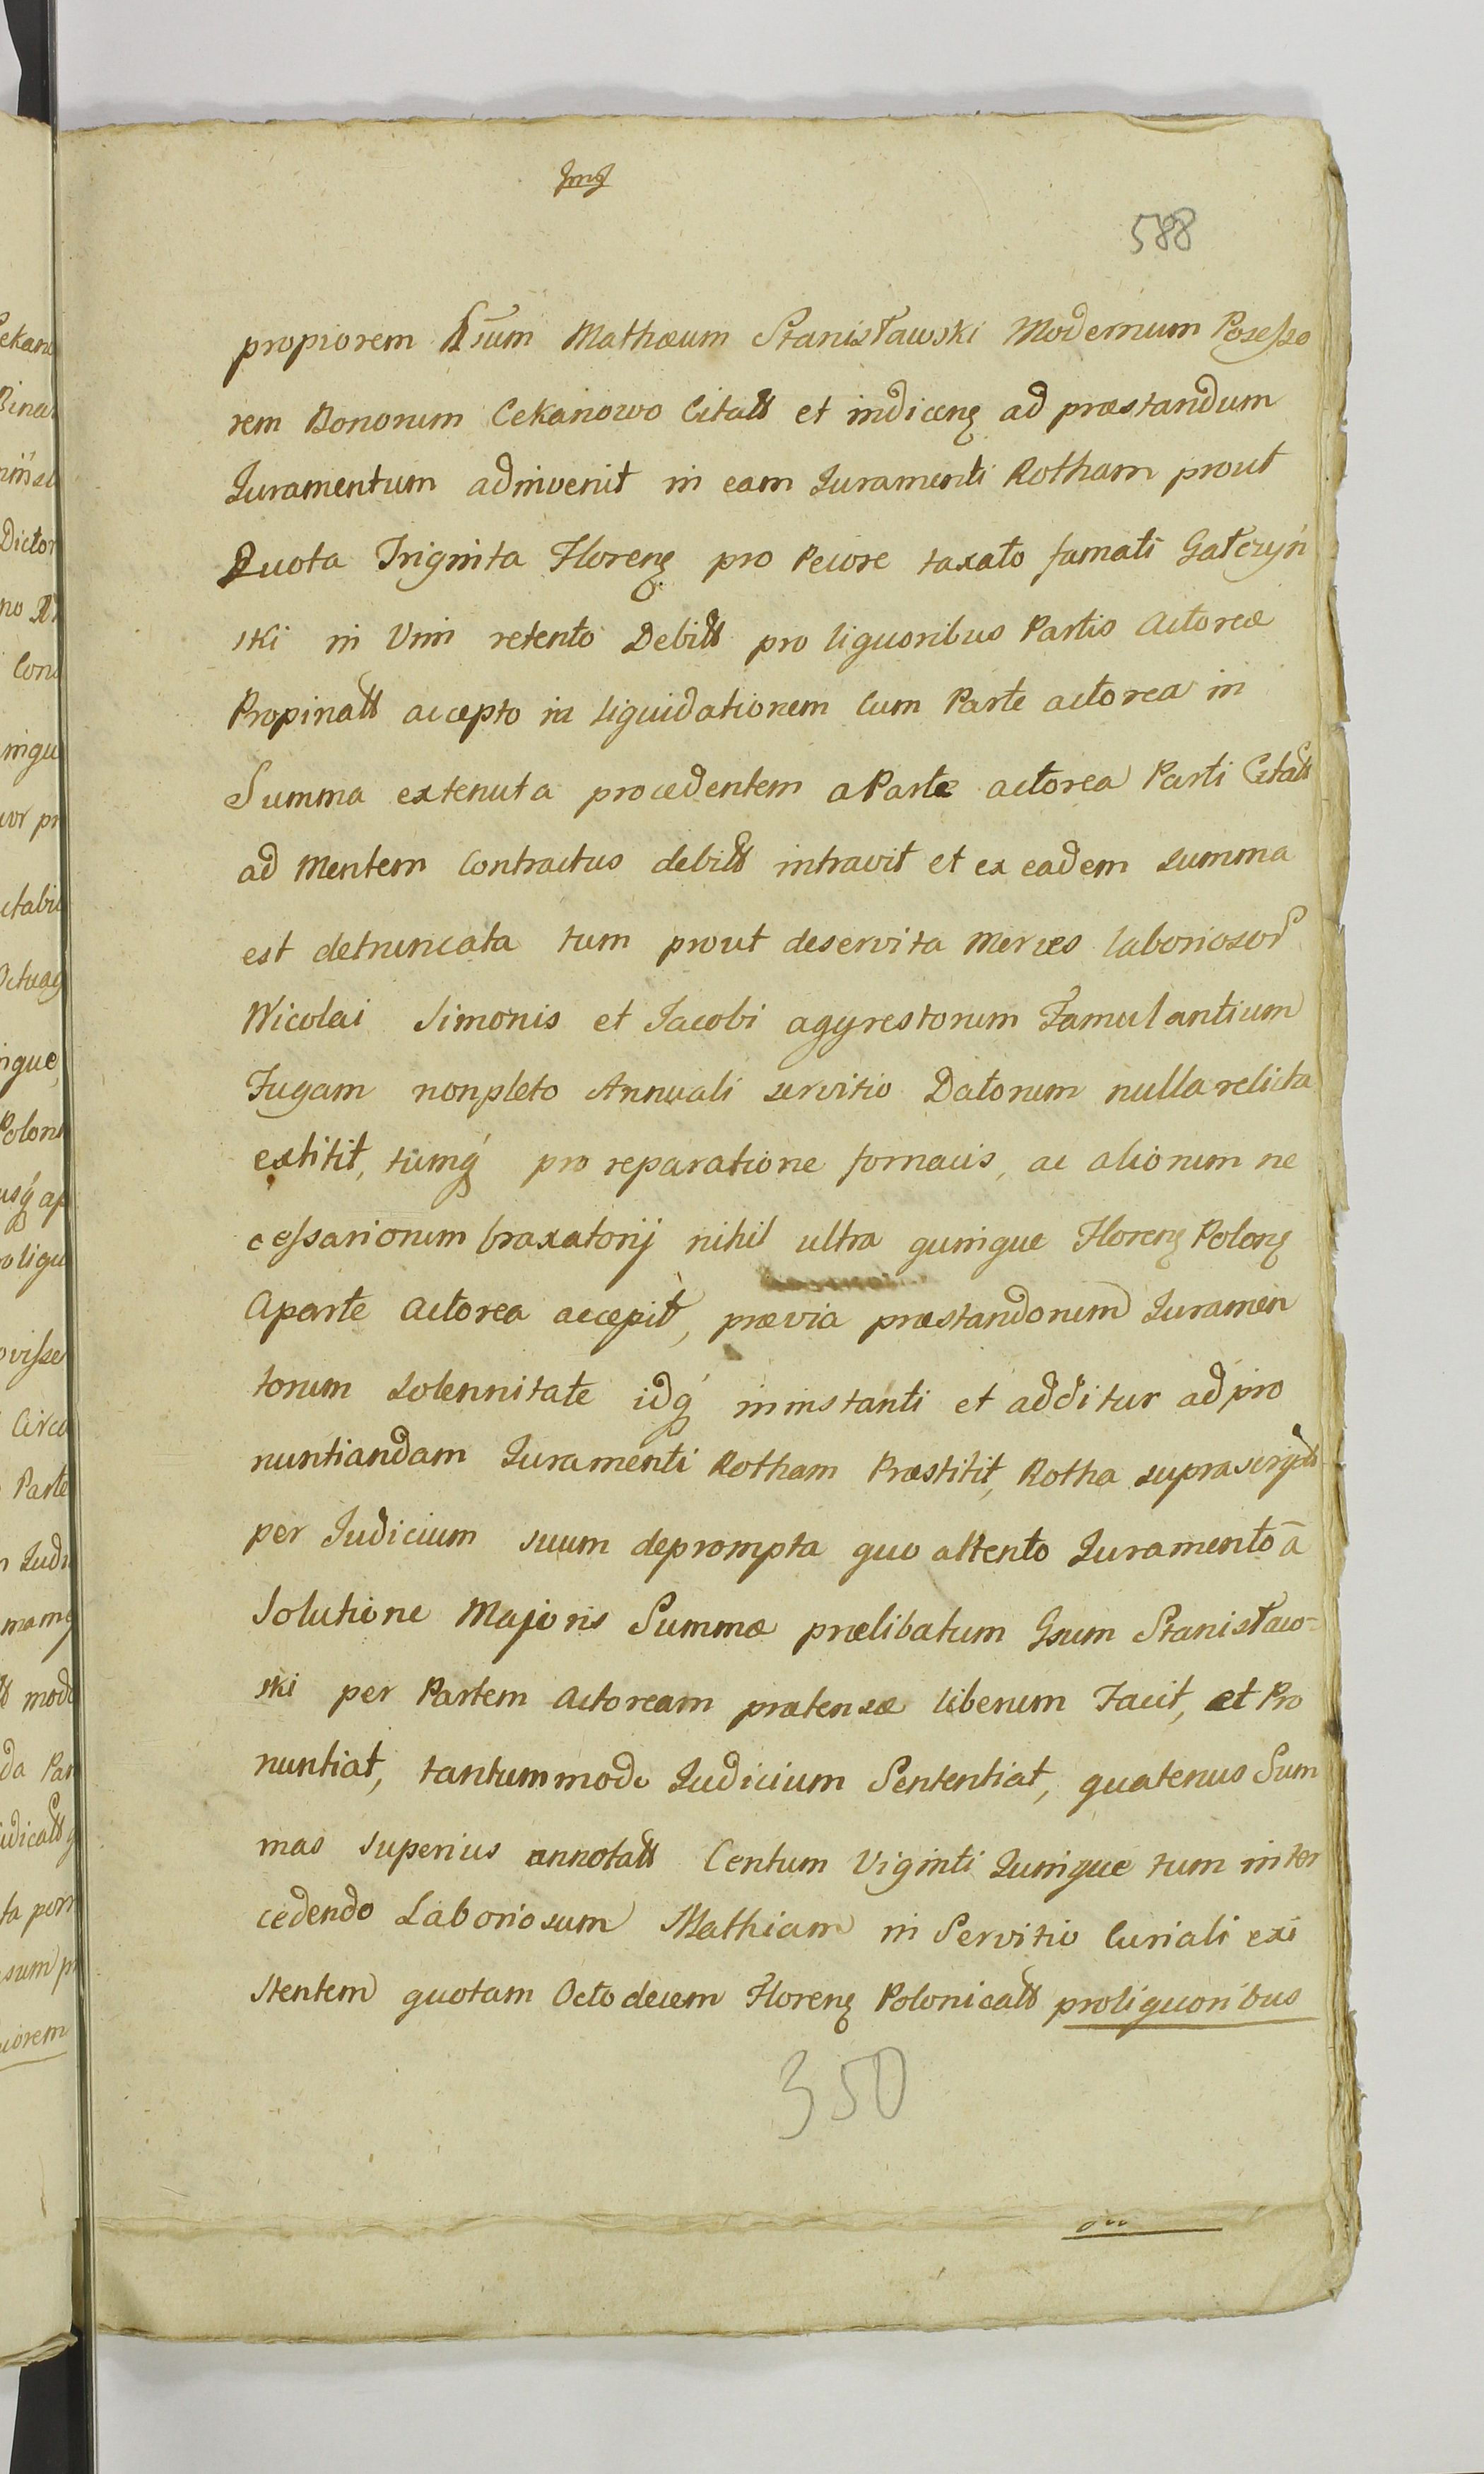 588
propiorem Gsum Mathæum Stanisławski Modernum Posesso
rem Bonorum Cekanowo Citatt et indiceng ad præstandum
Juramentum adinvenit in eam Juramenti Rotham prout
Quota Triginta Floreng pro Pecore taxato famati Gałczyń
ski in Vim retento Debitt pro liquoribus Partis Actoreæ
Propinatt accepto in liquidationem Cum Parte actorea in
Summa extenuta procedentem a Parte actorea Parti Citatt
ad Mentem Contractus debitt intravit et ex eadem summa
est detruncata tum prout deservita Merces laboriosor
Nicolai Simonis et Jacobi agyrestorum Famulantium
Fugam nonpleto Annuali servitio Datorum nulla relicta
extitit, tumq pro reparatione fornacis, ac aliorum ne
cessariorum braxatorij nihil ultra quinque Floreng Polong
Aparte Actorea accepit, prævia præstandorum Juramen
torum solennitate idq in instanti et additur ad pro
nuntiandam Juramenti Rotham Præstitit, Rotha suprascriptt
per Judicium suum deprompta quo attento Juramento ā
Solutione Majoris Summæ prælibatum Gsum Stanisław=
ski per Partem Actoream prætensæ liberum Facit, et Pro
nuntiat, tantummodo Judicium Sententiat, quatenus Sum
mas superius annotatt Centum Viginti Quinque tum inter
cedendo Laboriosum Mathiam in Servitio Curiali exi
stentem quotam Octodecem Floreng Polonicatt proliquoribus
350